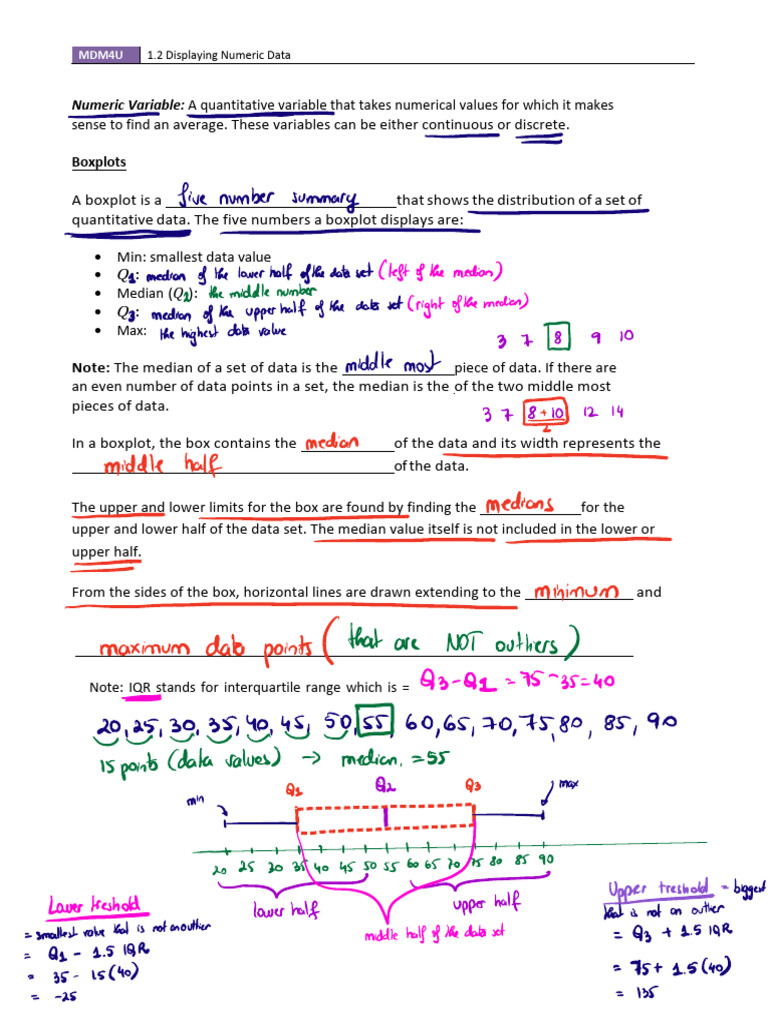 MDM4U 1.2 Displaying Numeric Data
Numeric Variable: A quantitative variable that takes numerical values for which it makes
sense to find an average. These variables can be either continuous or discrete.
Boxplots
A boxplot is a five number summary that shows the distribution of a set of
quantitative data. The five numbers a boxplot displays are:
• Min: smallest data value
• Q1: median of the lower half of the data set (left of the median)
• Median (Q2): the middle number
• Q3: median of the upper half of the data set (right of the median)
• Max: the highest data value
3 7 8 9 10
Note: The median of a set of data is the middle most piece of data. If there are
an even number of data points in a set, the median is the of the two middle most
pieces of data.
3 7 8 + 10 12 14
2
In a boxplot, the box contains the median of the data and its width represents the
middle half of the data.
The upper and lower limits for the box are found by finding the medians for the
upper and lower half of the data set. The median value itself is not included in the lower or
upper half.
From the sides of the box, horizontal lines are drawn extending to the minimum and
maximum data points (that are NOT outliers)
Note: IQR stands for interquartile range which is = Q3 - Q1 = 75 - 35 = 40
20, 25, 30, 35, 40, 45, 50, 55 60, 65, 70, 75, 80, 85, 90
15 points (data values) → median = 55
min Q1 Q2 Q3 max
20 25 30 35 40 45 50 55 60 65 70 75 80 85 90
lower half upper half
middle half of the data set
Lower treshold
= smallest value that is not an outlier
= Q1 - 1.5 IQR
= 35 - 15(40)
= -25
Upper treshold = biggest
that is not an outlier
= Q3 + 1.5 IQR
= 75 + 1.5(40)
= 135